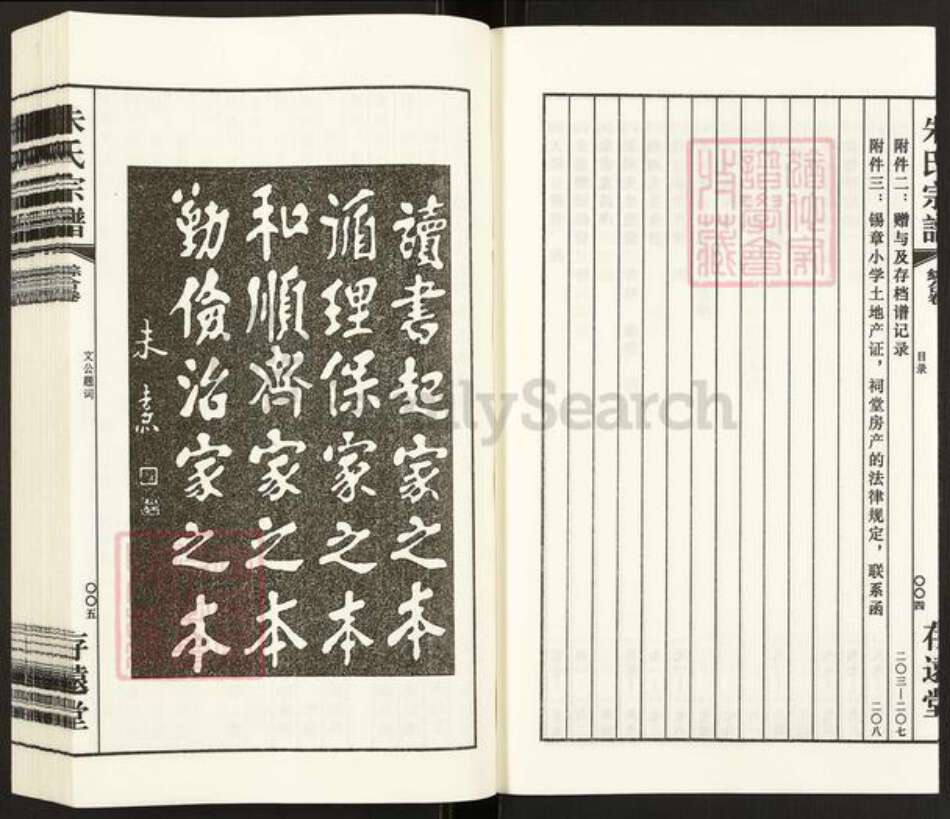 朱氏宗譜
目录
〇〇四
存遠堂
附件二：赠与及存档谱记录 二〇三—二〇七
附件三：锡章小学土地产证，祠堂房产的法律规定，联系函 二〇八
讀書起家之本
循理保家之本
和順齊家之本
勤儉治家之本
朱熹
朱氏宗譜
文公题词
〇〇五
存遠堂
FamilySearch